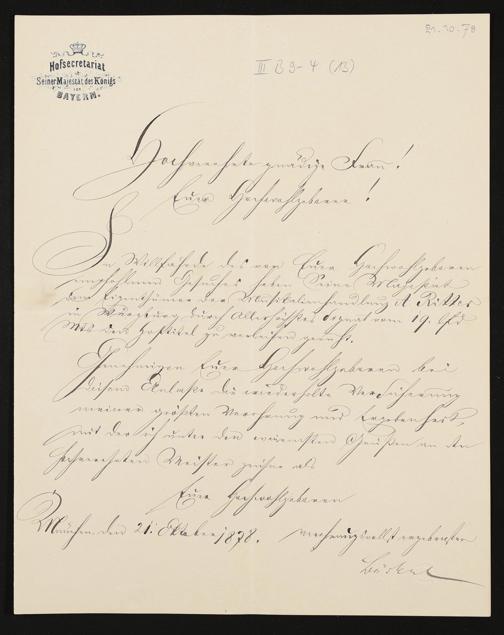 21.10.78
III B 9-4 (13)
Hofsecretariat
Seiner Majestät des Königs
von
BAYERN.
Hochverehrte gnädige Frau!
Euer Hochwohlgeboren!
In Willfahrde des von Euer Hochwohlgeboren
empfohlenen Gesuches haben Seine Majestät
dem Eigenthümer der Musikalienhandlung A Ritter
in Würzburg durch Allerhöchstes Signat vom 19. lfd
Mts den Hoftitel zu verleihen geruht.
Genehmigen Euer Hochwohlgeboren bei
diesem Anlaße die wiederholte Versicherung
meiner größten Verehrung und Ergebenheit,
mit der ich unter den wärmsten Grüßen an den
hochverehrten Meister zeichne als
Euer Hochwohlgeboren
München, den 21. Oktober 1878. verehrungsvollst ergebenster
Bürkel